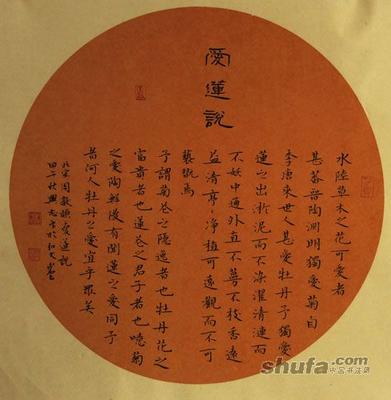 愛蓮說
水陸草木之花可愛者
甚蕃晉陶淵明獨愛菊自
李唐來世人甚愛牡丹予獨愛
蓮之出淤泥而不染濯清漣而
不妖中通外直不蔓不枝香遠
益清亭〻淨植可遠觀而不可
褻翫焉
予謂菊花之隱逸者也牡丹花之
富貴者也蓮花之君子者也噫菊
之愛陶鮮後有聞蓮之愛同予
者何人牡丹之愛宜乎眾矣
北宋周敦頤愛蓮說
午秋
shufa.com
中国书法网